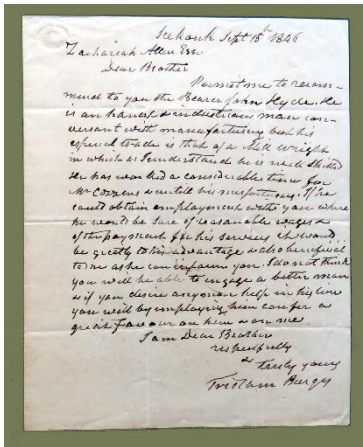 Seekonk Sept 15th 1846
Zachariah Allen Esqr
Dear Brother
Permit me to recom-
mend to you the Bearer John Hyde. He
is an honest & industrious man con-
versant with manufacturing but his
especial trade is that of a Mill Wright
in which I understand he is well skilled
He has worked a considerable time for
Mr Cozzens & until his misfortunes. If he
could obtain employment with you where
he would be sure of reasonable wages &
of the payment for his services it would
be greatly to his advantage & also beneficial
to me as he can inform you. I do not think
you will be able to engage a better man
& if you desire any man help in his line
you will by employing him confer a
great favour on him & on me
I am Dear Brother
respectfully
& truly yours
Tristam Burges